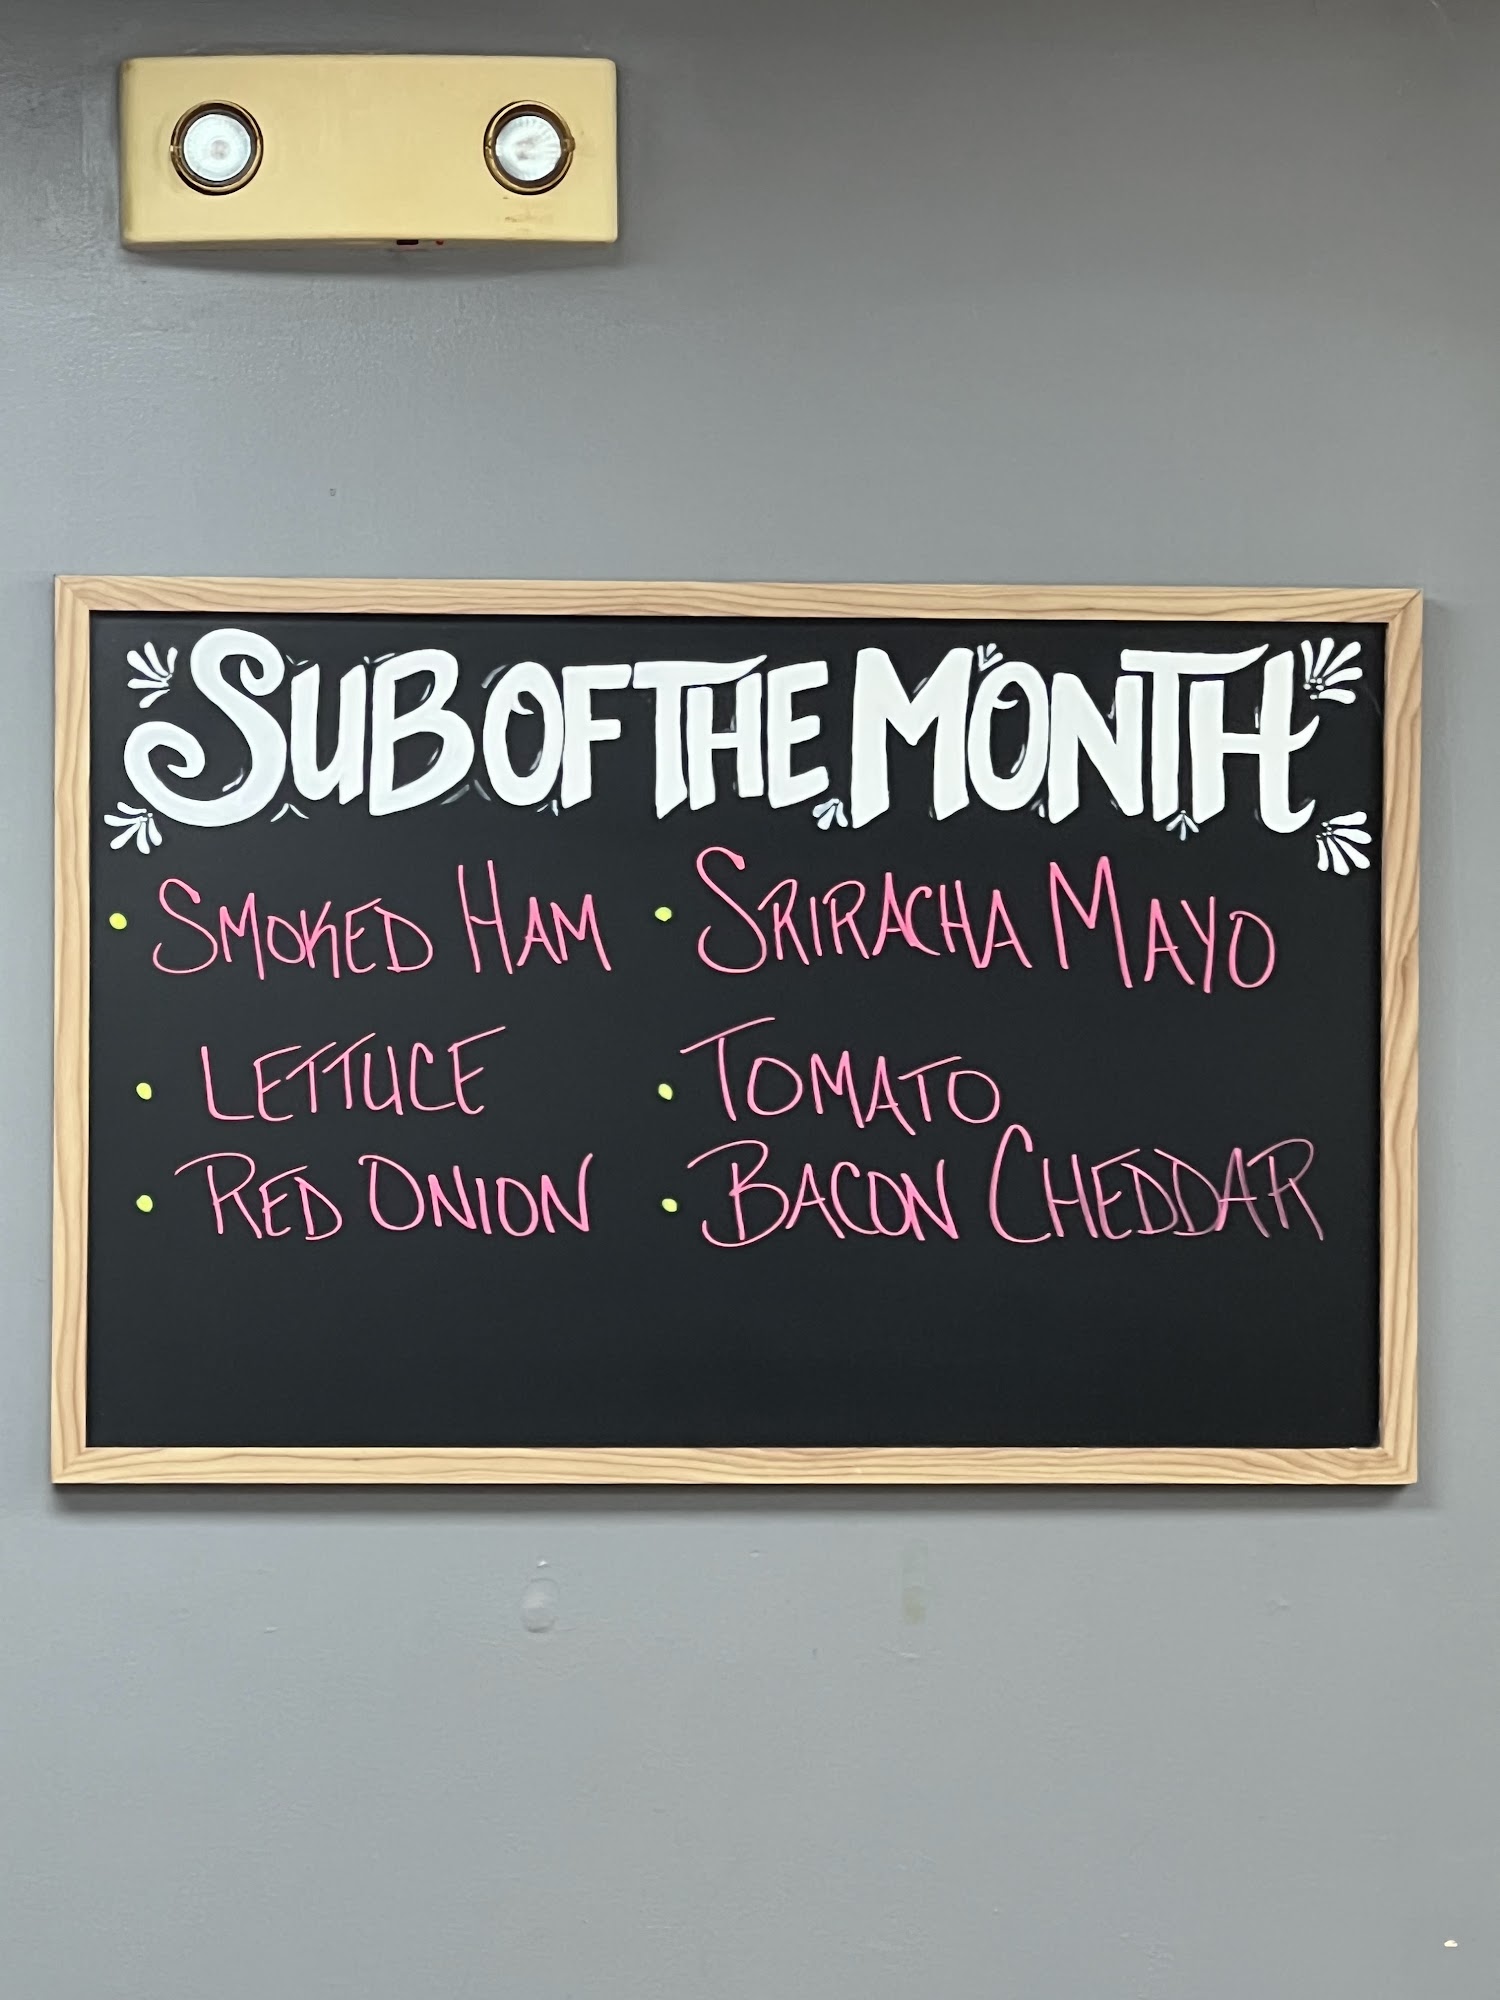 SUB OF THE MONTH
• SMOKED HAM • SRIRACHA MAYO
• LETTUCE • TOMATO
• RED ONION • BACON CHEDDAR